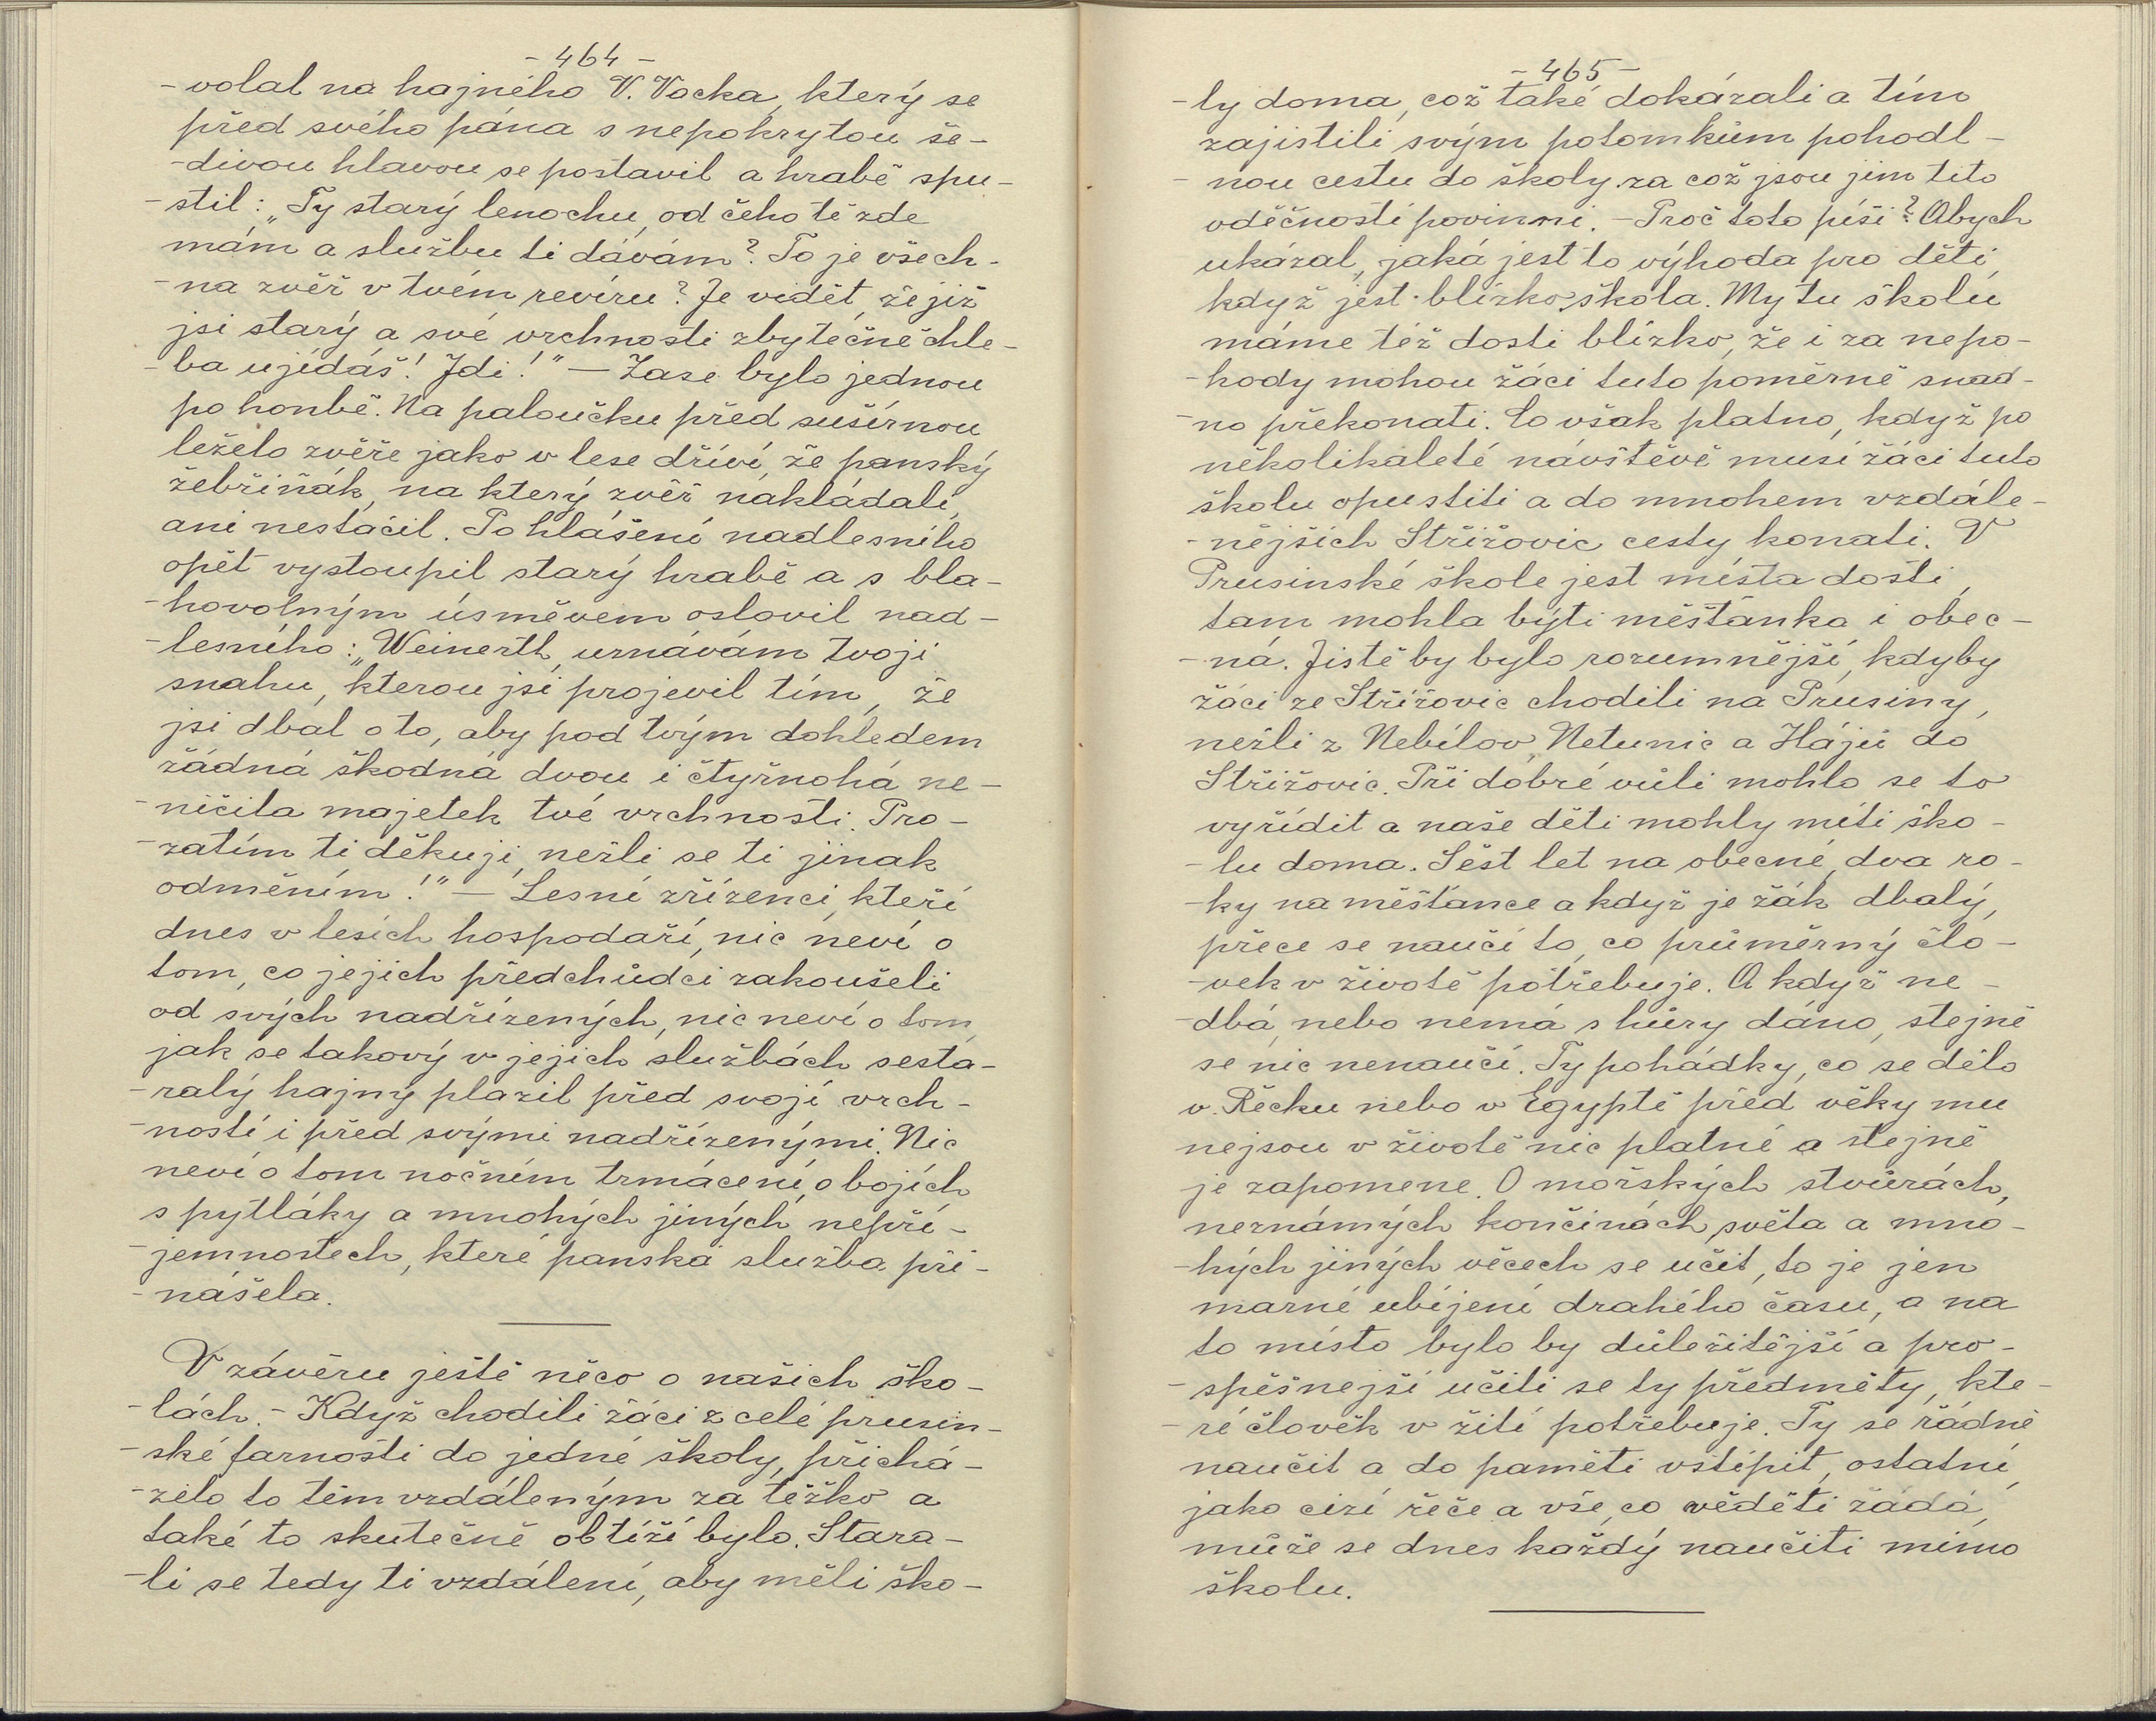 - 464 -
-volal na hajného V. Vacka, který se
před svého pána s nepokrytou še-
-divou hlavou se postavil a hrabě spu-
-stil: „Ty starý lenochu, od čeho tě zde
mám a službu ti dávám? To je všech-
-na zvěř v tvém revíru? Je vidět, že již
jsi starý a své vrchnosti zbytečně chle-
-ba ujídáš! Jdi!" — Zase bylo jednou
po honbě. Na paloučku před sušírnou
leželo zvěře jako v lese dříví, že panský
žebřiňák, na který zvěř nakládali,
ani nestačil. Po hlášení nadlesního
opět vystoupil starý hrabě a s bla-
-hovolným úsměvem oslovil nad-
-lesního: „Weinertl, uznávám tvoji
snahu, kterou jsi projevil tím, že
jsi dbal o to, aby pod tvým dohledem
žádná škodná dvou i čtyřnohá ne-
-ničila majetek tvé vrchnosti. Pro-
-zatím ti děkuji, nežli se ti jinak
odměním!" — Lesní zřízenci, kteří
dnes v lesích hospodaří, nic neví o
tom, co jejich předchůdci zakoušeli
od svých nadřízených, nic neví o tom,
jak se takový v jejich službách sesta-
-ralý hajný plazil před svojí vrch-
-ností i před svými nadřízenými. Nic
neví o tom nočním trmácení, o bojích
s pytláky a mnohých jiných nepří-
-jemnostech, které panská služba při-
-nášela.
V závěru ještě něco o našich ško-
-lách. - Když chodili žáci z celé prusin-
-ské farnosti do jedné školy, přichá-
-zelo to těm vzdáleným za těžko a
také to skutečně obtíží bylo. Stara-
-li se tedy ti vzdálení, aby měli ško-
- 465 -
-ly doma, což také dokázali a tím
zajistili svým potomkům pohodl-
-nou cestu do školy za což jsou jim tito
vděčností povinni. - Proč toto píši? Abych
ukázal, jaká jest to výhoda pro děti,
když jest blízko škola. My tu školu
máme též dosti blízko, že i za nepo-
-hody mohou žáci tuto poměrně snad-
-no překonati. Co však platno, když po
několikaleté návštěvě musí žáci tuto
školu opustiti a do mnohem vzdále-
-nějších Střížovic cesty konati. V
Prusinské škole jest místa dosti,
tam mohla býti měšťanka i obec-
-ná. Jistě by bylo rozumnější, kdyby
žáci ze Střížovic chodili na Prusiny,
nežli z Nebílov, Netunic a Hájů do
Střížovic. Při dobré vůli mohlo se to
vyřídit a naše děti mohly míti ško-
-lu doma. Šest let na obecné, dva ro-
-ky na měšťance a když je žák dbalý,
přece se naučí to, co průměrný člo-
-vek v životě potřebuje. A když ne-
-dbá, nebo nemá shůry dáno, stejně
se nic nenaučí. Ty pohádky, co se dělo
v Řecku nebo v Egyptě před věky mu
nejsou v životě nic platné a stejně
je zapomene. O mořských stvůrách,
neznámých končinách světa a mno-
-hých jiných věcech se učit, to je jen
marné ubíjení drahého času, a na
to místo bylo by důležitější a pro-
-spěšnejší učiti se ty předměty, kte-
-ré člověk v žití potřebuje. Ty se řádně
naučit a do paměti vštípit, ostatní,
jako cizí řeče a vše, co věděti žádá,
může se dnes každý naučiti mimo
školu.